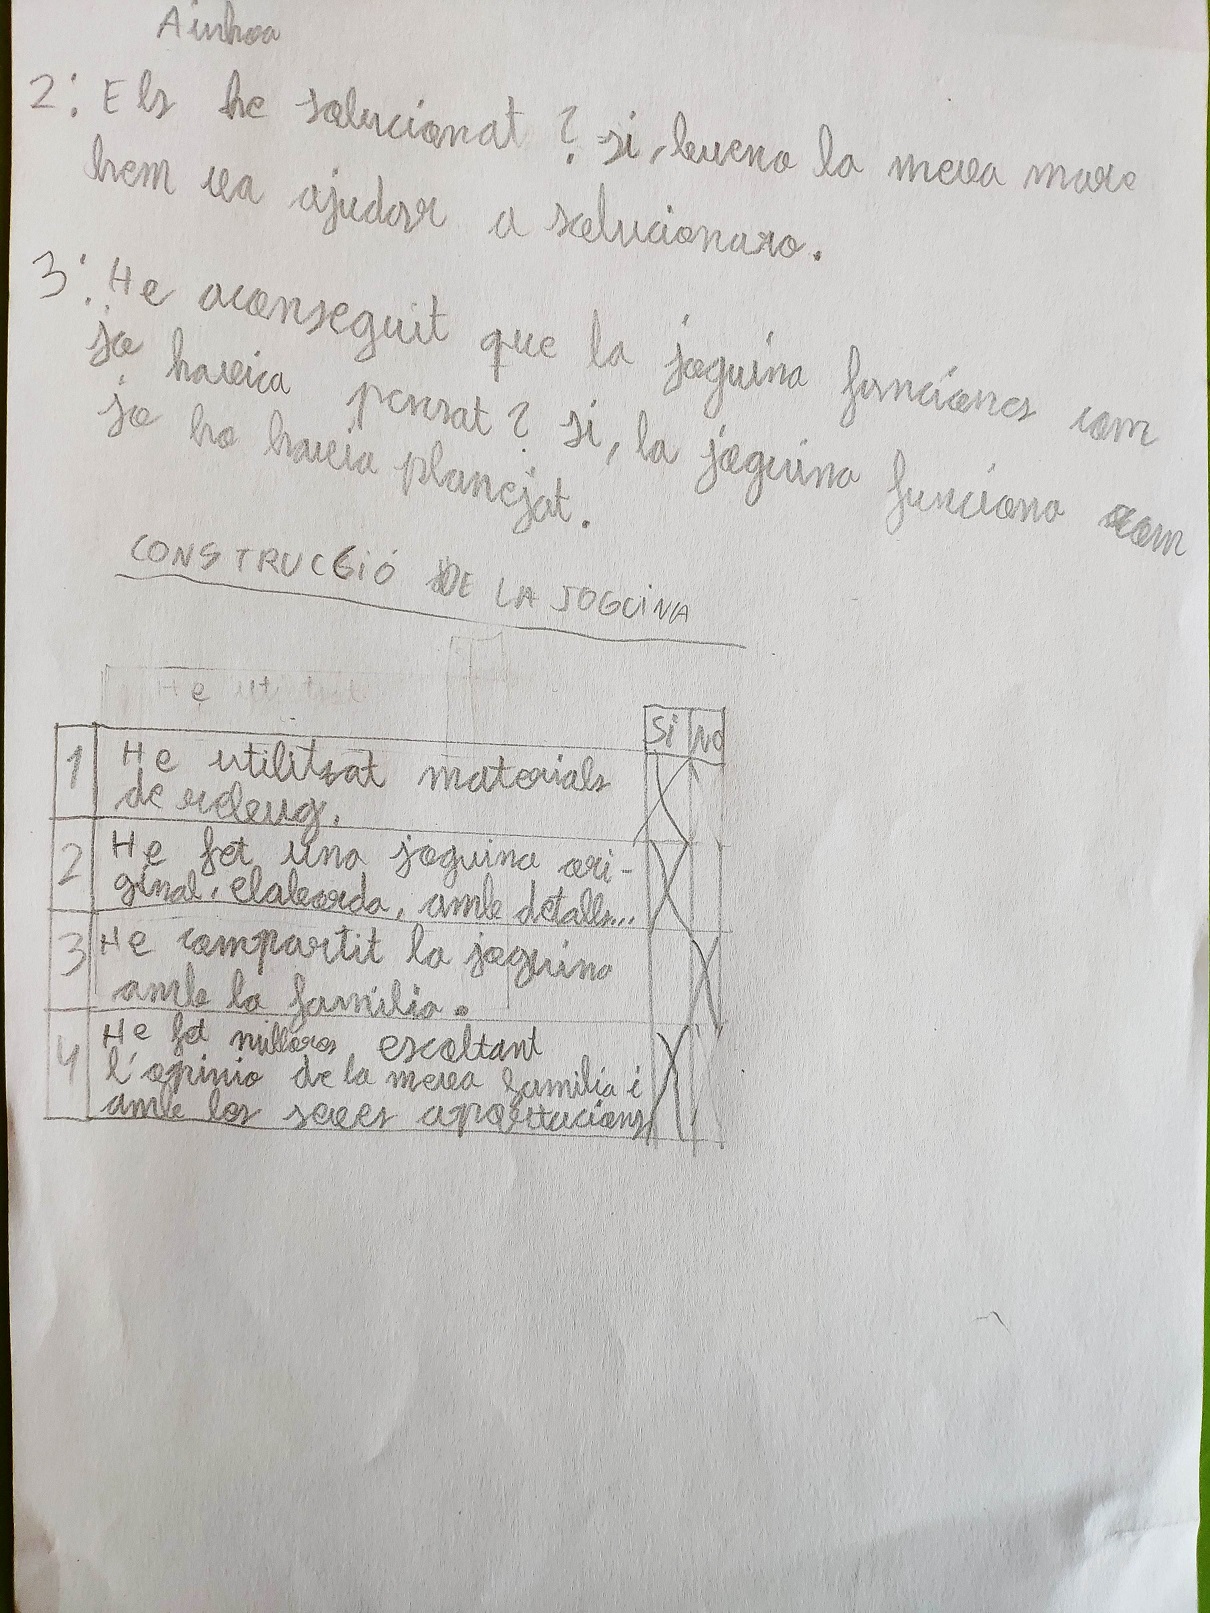 Ainhoa
2: Els he solucionat? si, bueno la meva mare
hem va ajudar a solucionaro.
3: He aconseguit que la joguina funciones com
jo havia pensat? si, la joguina funciona com
jo ho havia planejat.
CONSTRUCCIÓ DE LA JOGUINA
He utilitsat
Si No
1 He utilitsat materials
de rebug.
2 He fet una joguina ori-
ginal, elaborda, amb detalls...
3 He compartit la joguina
amb la familia.
4 He fet millores escoltant
l'opinio de la meva familia i
amb les seves aportacions